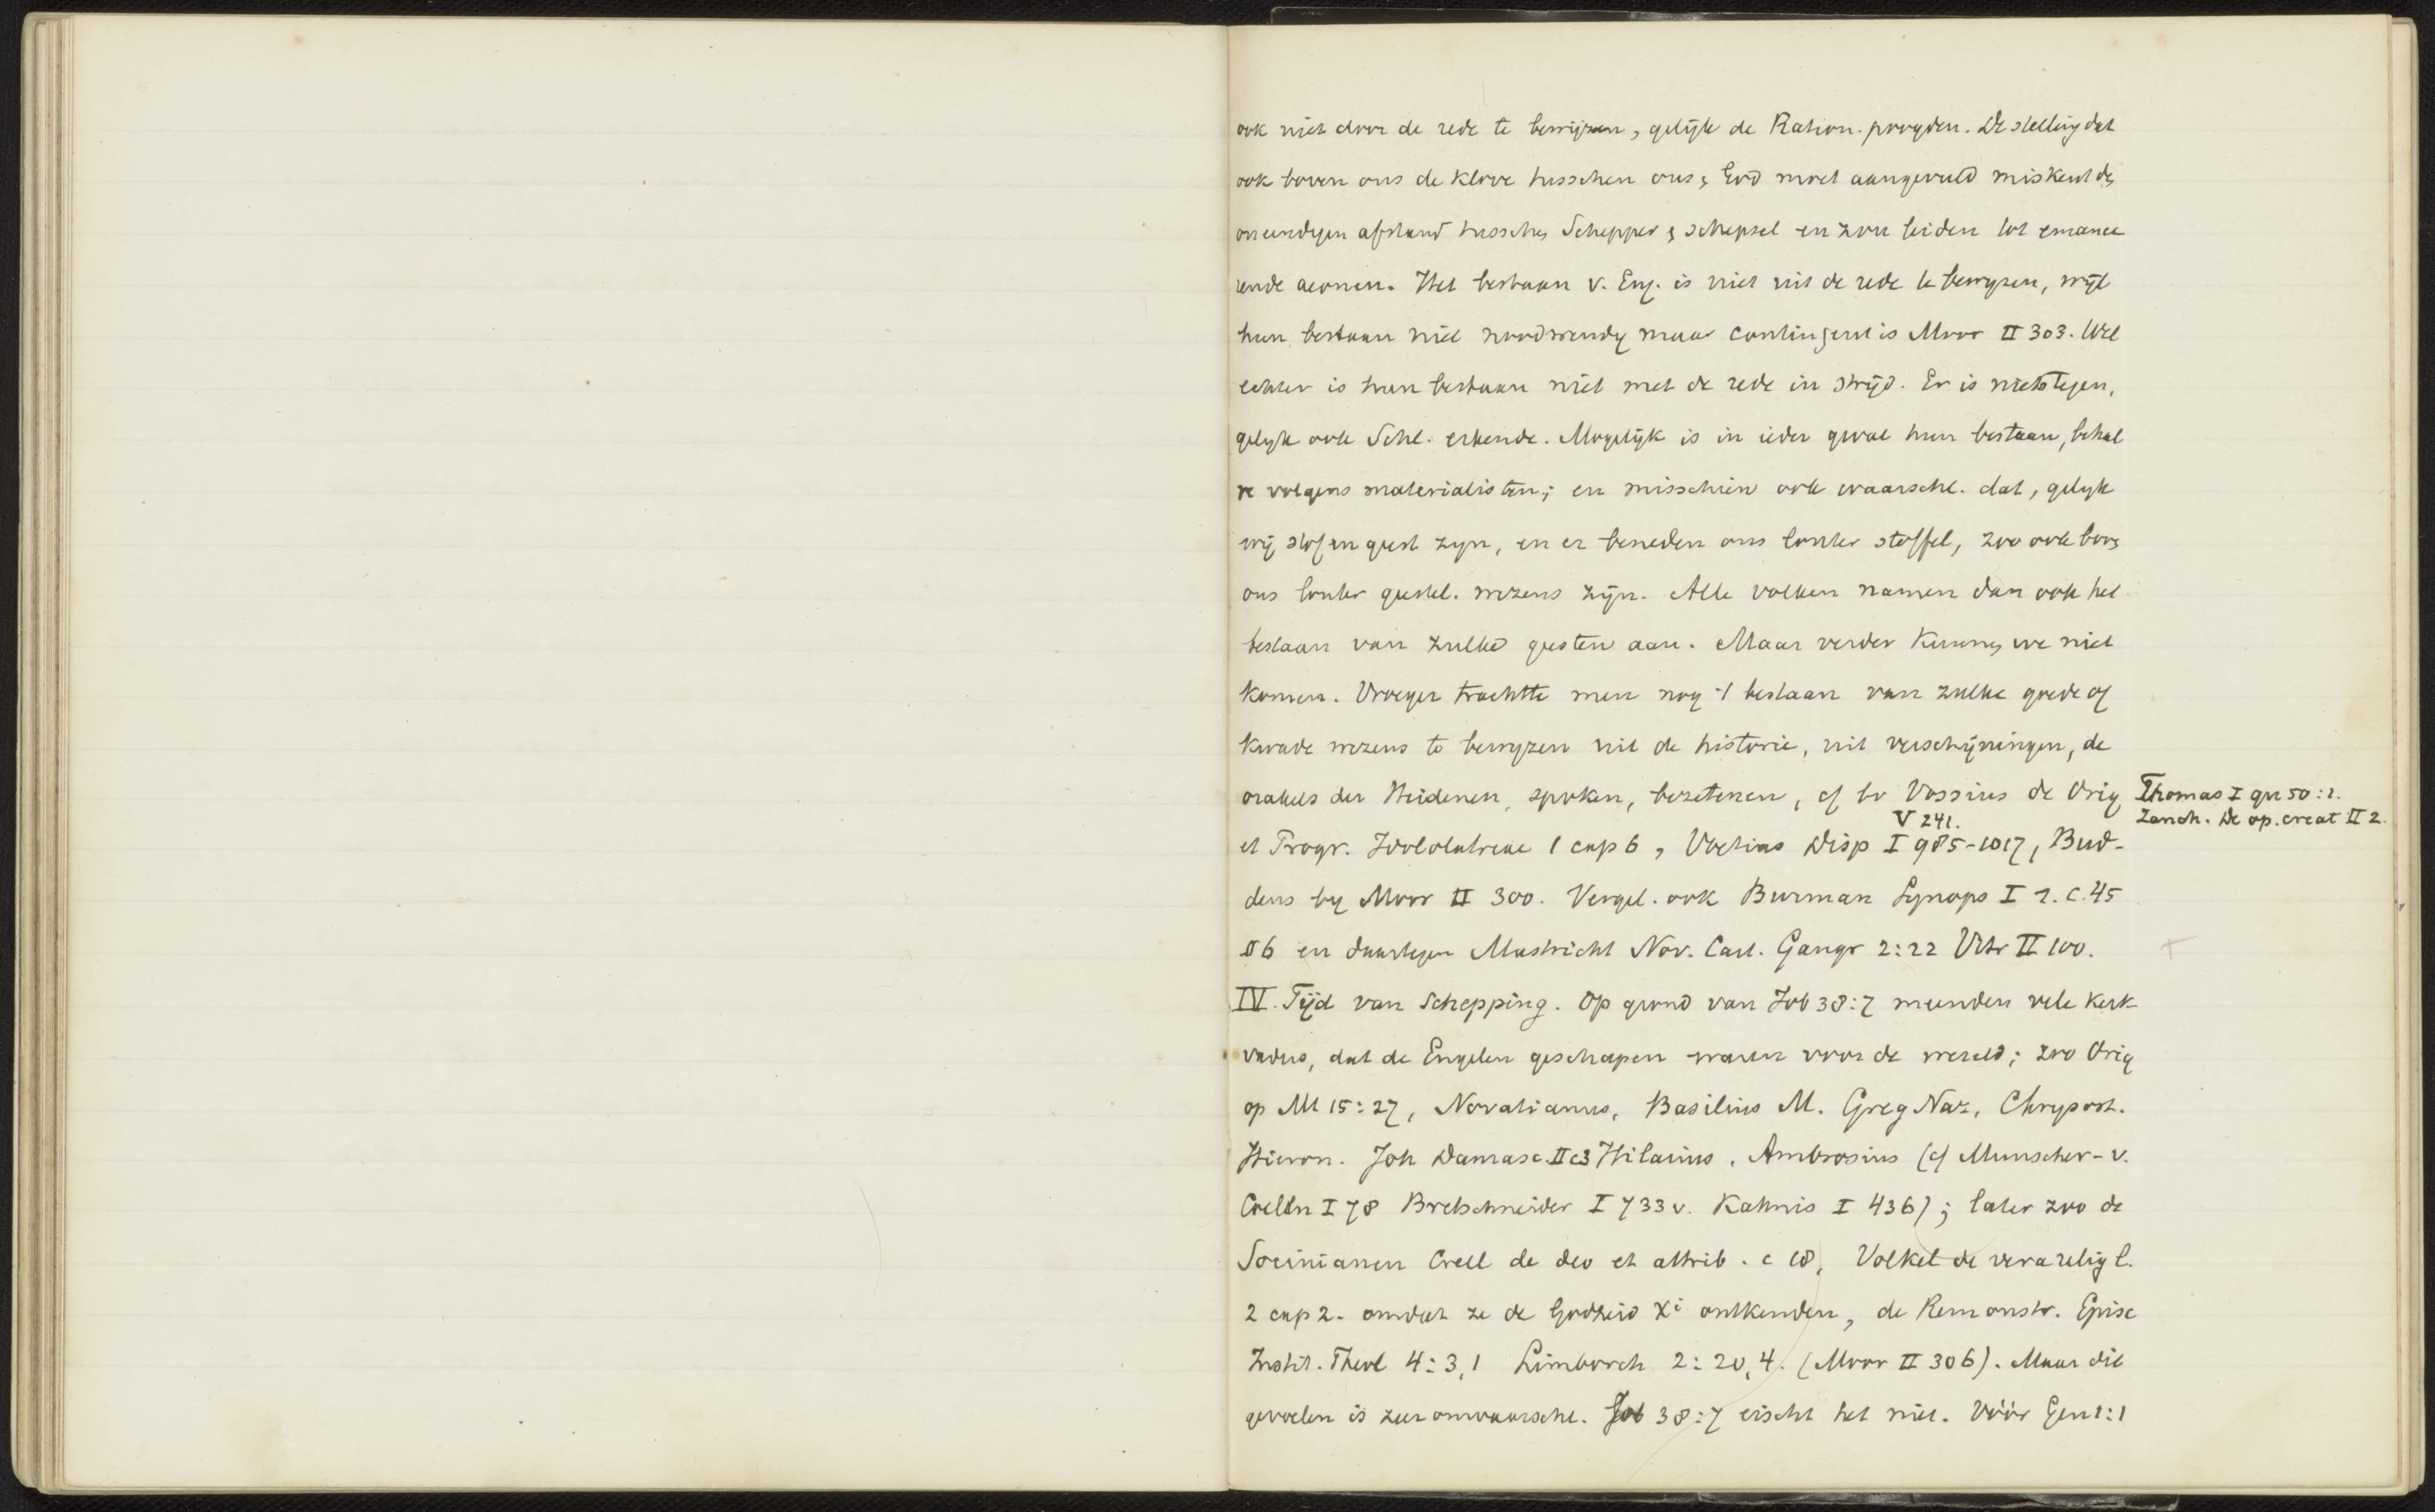 ook niet door de rede te bewijzen, gelijk de Ration. poogden. De stelling dat
ook boven ons de klove tusschen ons & God moet aangevuld miskent den
oneindigen afstand tusschen Schepper & schepsel en zou leiden tot emanee
rende aeonen. Het bestaan v. Eng. is niet uit de rede te bewyzen, wijl
hun bestaan niet noodwendig maar contingent is Moor II 303. Wel
echter is hun bestaan niet met de rede in strijd. Er is niets tegen,
gelyk ook Schl. erkende. Mogelijk is in ieder geval hun bestaan, behal
ve volgens materialisten; en misschien ook waarschl. dat, gelyk
wij stof en geest zyn, en er beneden ons louter stoffel, zoo ook boven
ons louter geestel. wezens zijn. Alle volken namen dan ook het
bestaan van zulke geesten aan. Maar verder kunnen we niet
komen. Vroeger trachtte men nog 't bestaan van zulke goede of
kwade wezens te bewyzen uit de historie, uit verschijningen, de
orakels der Heidenen, spoken, bezetenen, cf bv Vossius de Orig
Thomas I qu 50:1.
Zanch. De op. creat II 2.
V 241.
et Progr. Idololatreiae 1 cap 6, Voetius Disp I 985-1017, Bud-
deus by Moor II 300. Vergel. ook Burman Synops I 1. c. 45
§ 6 en daartegen Mastricht Nov. Cart. Gangr 2:22 Vitr II 100.
IV. Tijd van Schepping. Op grond van Job 38:7 meenden vele kerk-
vaders, dat de Engelen geschapen waren voor de wereld; zoo Orig
op Mt 15:27, Novatianus, Basilius M. Greg Naz, Chrysost.
Hieron. Joh Damasc. II c3 Hilarius, Ambrosius (cf Munscher-v.
Coelln I 78 Bretschneider I 733 v. Kahnis I 436); later zoo de
Socinianen Crell de deo et attrib. c 18, Volkel de vera relig l.
2 cap 2. omdat ze de Godheid Xi ontkenden, de Remonstr. Episc
Instit. Theol 4:3,1 Limborch 2:20,4. (Moor II 306). Maar dit
gevoelen is zeer onwaarschl. Job 38:7 eischt het niet. Vóór Gen 1:1